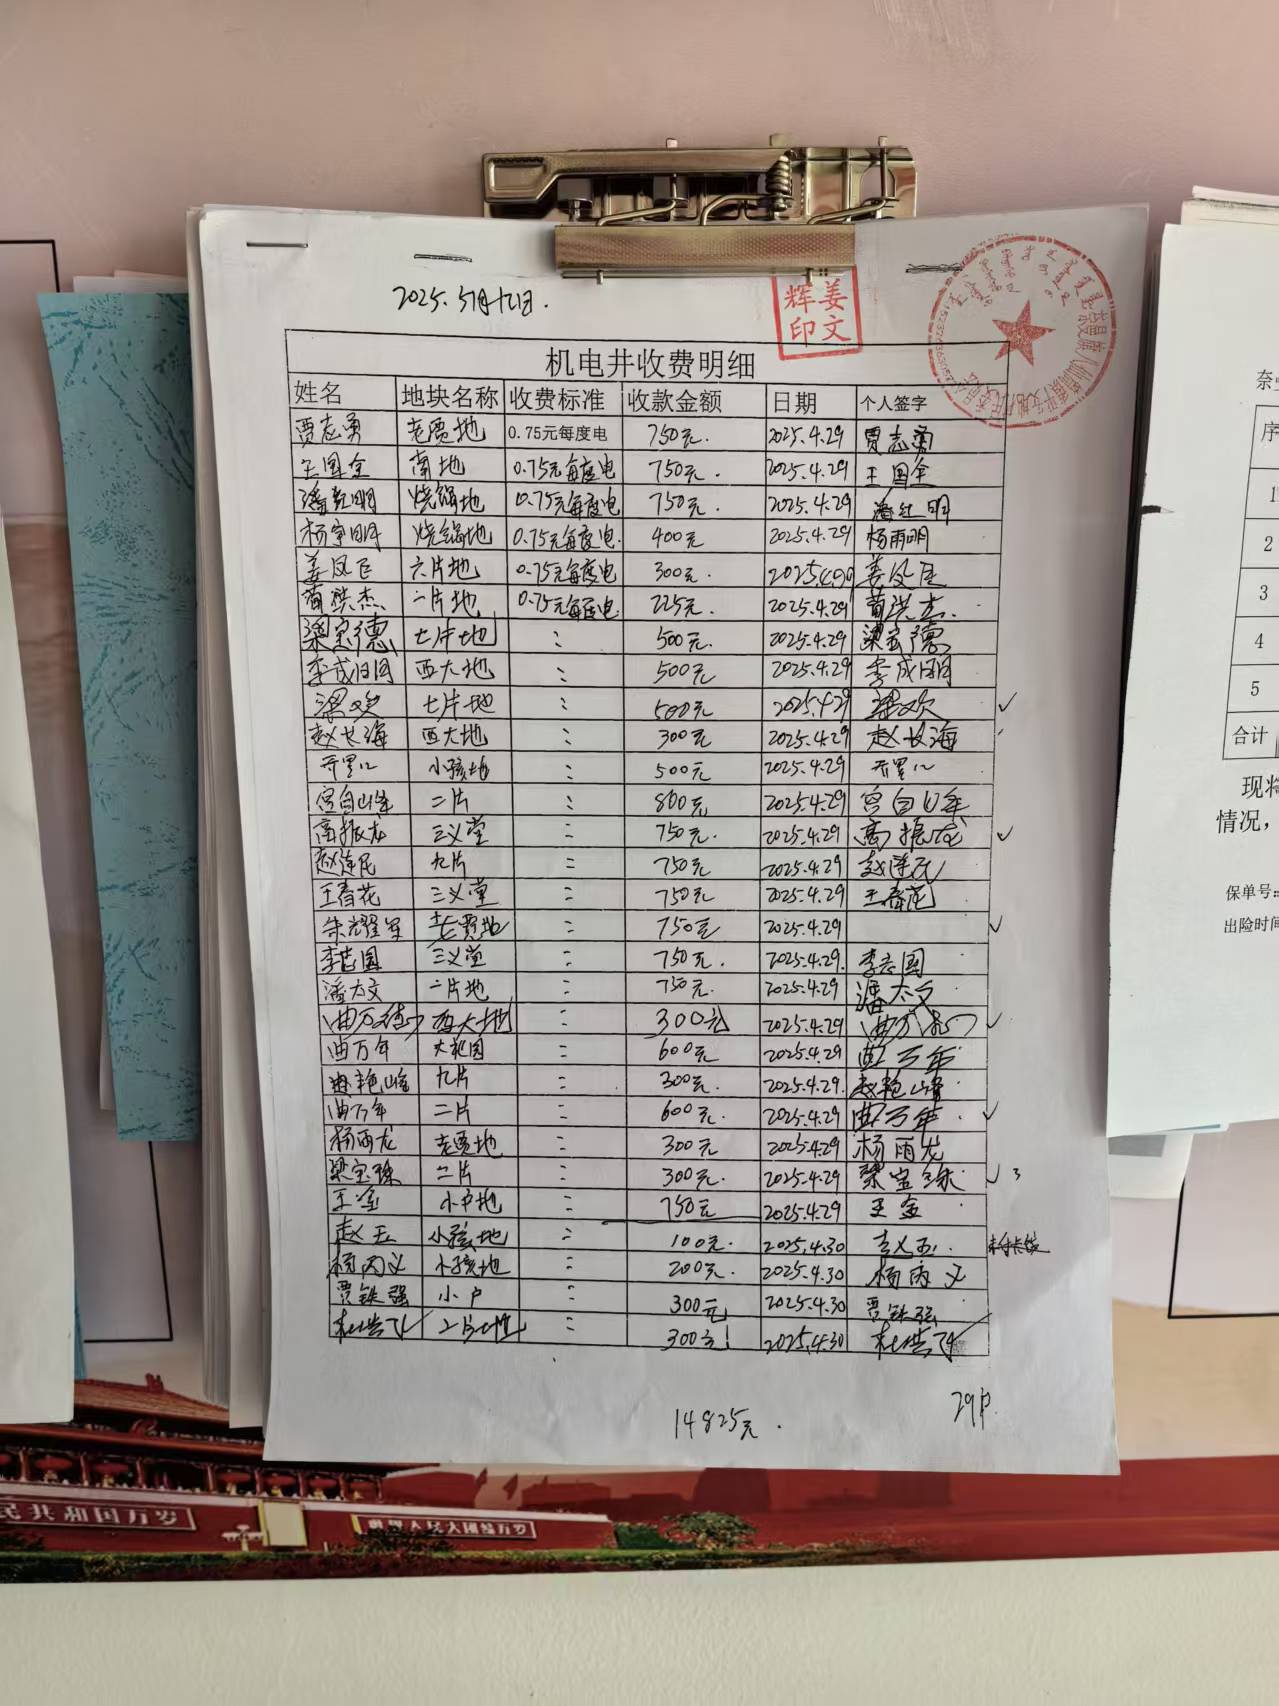 2025.5月12日.
姜文
辉印
机电井收费明细
姓名 地块名称 收费标准 收款金额 日期 个人签字
贾志勇 老贾地 0.75元每度电 750元. 2025.4.29 贾志勇
王国全 南地 0.75元每度电 750元. 2025.4.29 王国全
潘红明 烧锅地 0.75元每度电 750元. 2025.4.29 潘红明
杨宇明 烧锅地 0.75元每度电. 400元 2025.4.29 杨雨明
姜凤臣 六片地 0.75元每度电 300元. 姜凤臣
黄洪杰 二片地 0.75元每度电. 225元. 2025.4.29 黄洪杰.
梁宝德 七片地 500元. 2025.4.29 梁宝德
李成明 西大地 500元 2025.4.29 李成明
梁欢 七片地 500元 2025.4.29 梁欢 ✓
赵长海 西大地 300元 2025.4.29 赵长海
小孩地 500元 2025.4.29
宫白山年 二片 800元 2025.4.29
高振龙 三义堂 750元. 2025.4.29 高振龙 ✓
赵连民 九片 750元 2025.4.29 赵连民
王春花 三义堂 750元 2025.4.29 王春花
朱耀军 老贾地 750元 2025.4.29 ✓
李志国 三义堂 750元. 2025.4.29. 李志国
潘文 二片地 750元. 2025.4.29 潘文
曲万 西大地 300元 2025.4.29 曲万 ✓
曲万年 600元 2025.4.29 曲万年
赵艳峰 九片 300元. 2025.4.29. 赵艳峰
曲万年 二片 600元. 2025.4.29 曲万年. ✓
杨雨龙 老贾地 300元 2025.4.29 杨雨龙
梁宝珠 二片 300元. 2025.4.29 梁宝珠 ✓ 3
王金 小户地 750元 2025.4.29 王金
赵玉 小孩地 100元. 2025.4.30 赵玉.
杨丙义 小孩地 200元. 2025.4.30 杨丙义
贾铁强 小户 300元 2025.4.30 贾铁强
杜洪飞 二片地 300元 2025.4.30 杜洪飞
14825元.
29户.
序
1
2
3
4
5
合计
情况，
保单号:
出险时间
民共和国万岁
世界人民大团结万岁